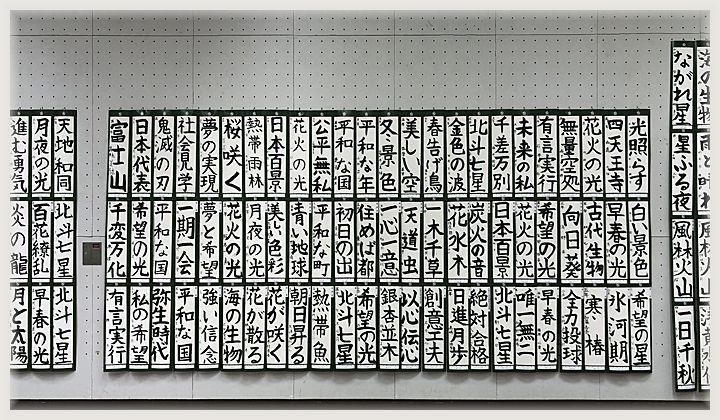 海の生物
ながれ星
星ふる夜
風林火山
一日千秋
光照らす
白い景色
希望の星
四天王寺
早春の光
氷河期
花火の光
古代生物
寒椿
無量空処
向日葵
全力投球
有言実行
希望の光
早春の光
未来の私
花火の光
唯一無二
千差万別
日本百景
北斗七星
北斗七星
炭火の音
絶対合格
金色の波
花水木
日進月歩
春告げ鳥
一木千草
創意工夫
美しい空
天道虫
以心伝心
冬景色
一心一意
銀杏並木
平和な年
住めば都
希望の光
平和な国
初日の出
北斗七星
公平無私
平和な町
熱帯魚
花火の光
青い地球
朝日昇る
日本百景
美しい色彩
花が咲く
熱帯雨林
月夜の光
花が散る
桜咲く
花火の光
海の生物
夢の実現
夢と希望
強い信念
社会見学
一期一会
平和な国
鬼滅の刃
平和な国
弥生時代
日本代表
希望の光
私の希望
富士山
千変万化
有言実行
天地和同
北斗七星
北斗七星
月夜の光
百花繚乱
早春の光
進む勇気
炎の龍
月と太陽